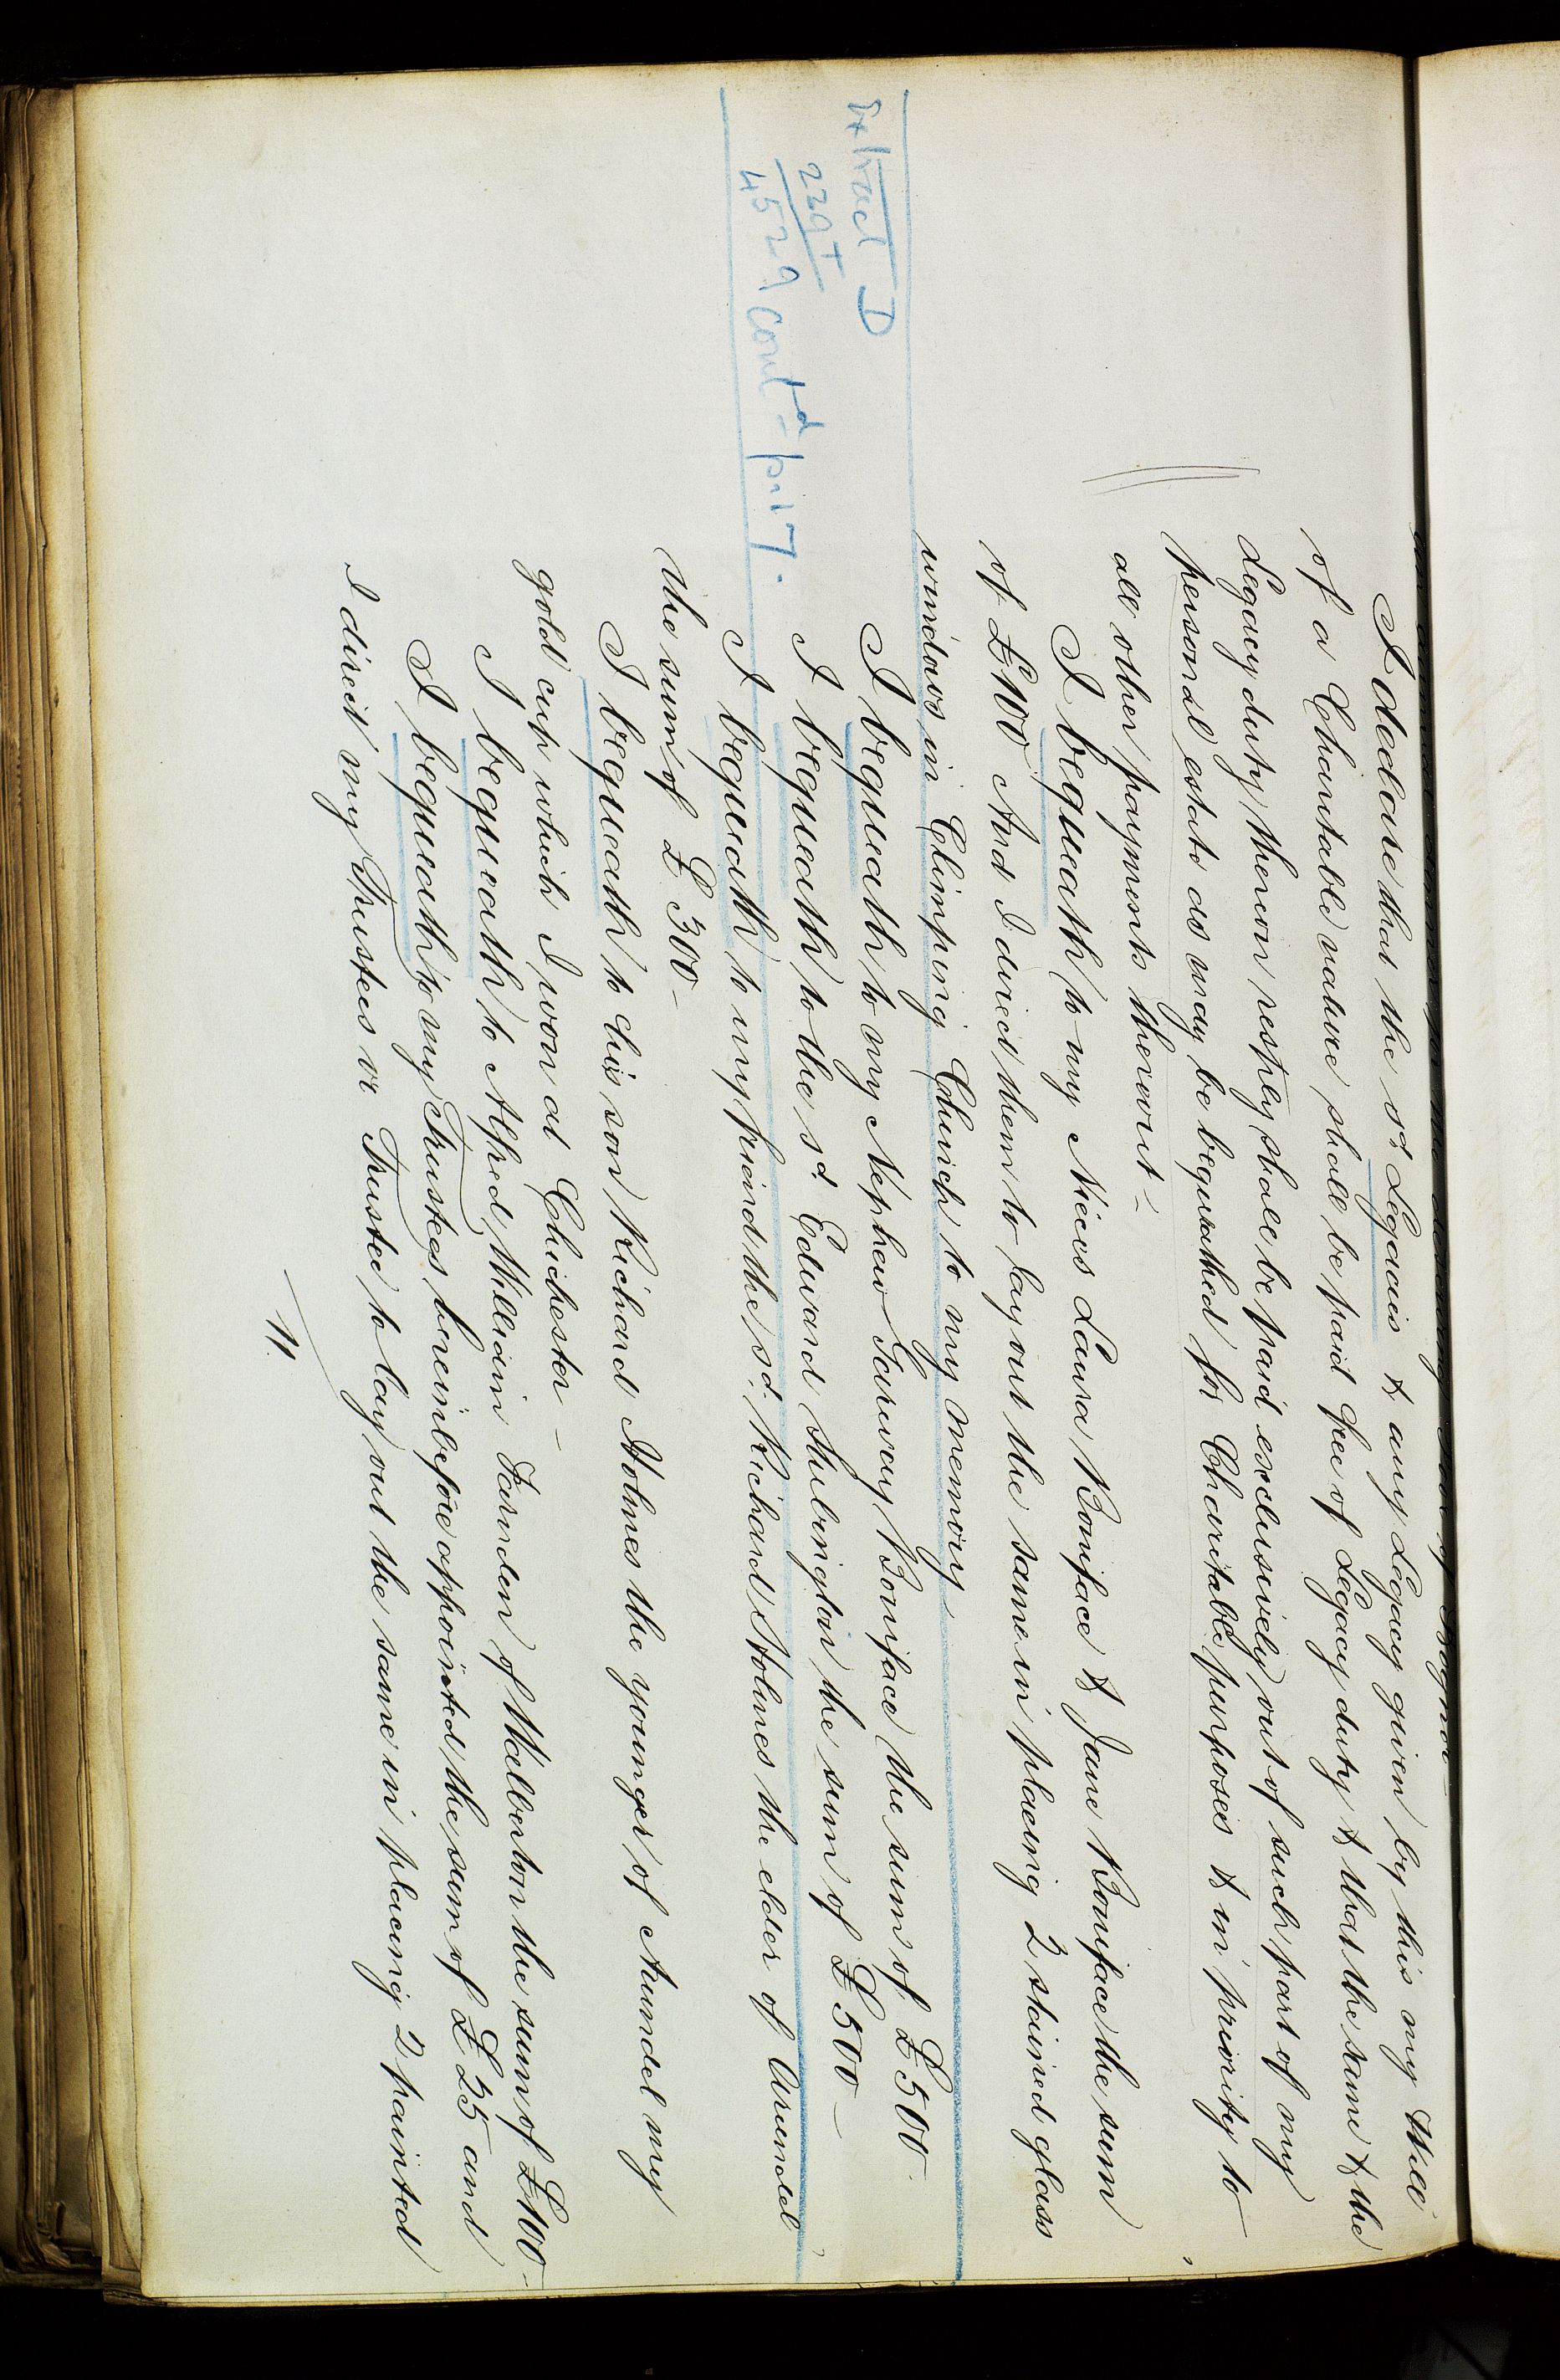 I declare that the sd. Legacies & any Legacy given by this my Will
of a Charitable nature shall be paid free of Legacy duty & that the same & the
Legacy duty thereon resptely shall be paid exclusively out of such part of my
personal estate as may be bequeathed for Charitable purposes & in priority to
all other payments thereout -
I bequeath to my Nieces Laura Boniface & Jane Boniface the sum
of £100 And I direct them to lay out the same in placing 2 stained glass
windows in Climping Church to my memory
Extract D
I bequeath to my Nephew Garway Boniface the sum of £500 -
229 +
I bequeath to the sd. Edward Stubington the sum of £500 -
4529 contd - p. 17.
I bequeath to my friend the sd. Richard Holmes the elder of Arundel
the sum of £300 -
I bequeath to his son Richard Holmes the younger of Arundel my
gold cup which I won at Chichester -
I bequeath to Alfred William Farnden of Walberton the sum of £100 -
I bequeath to my Trustees hereinbefore appointed the sum of £25 and
I direct my Trustees or Trustee to lay out the same in placing 2 painted
11.